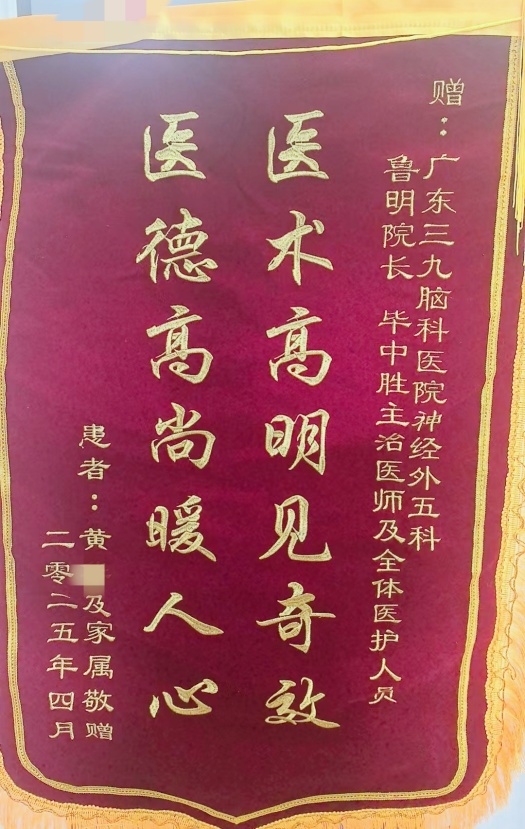 赠：
广东三九脑科医院神经外五科
鲁明院长 毕中胜主治医师及全体医护人员
医术高明见奇效
医德高尚暖人心
患者：黄及家属敬赠
二零二五年四月